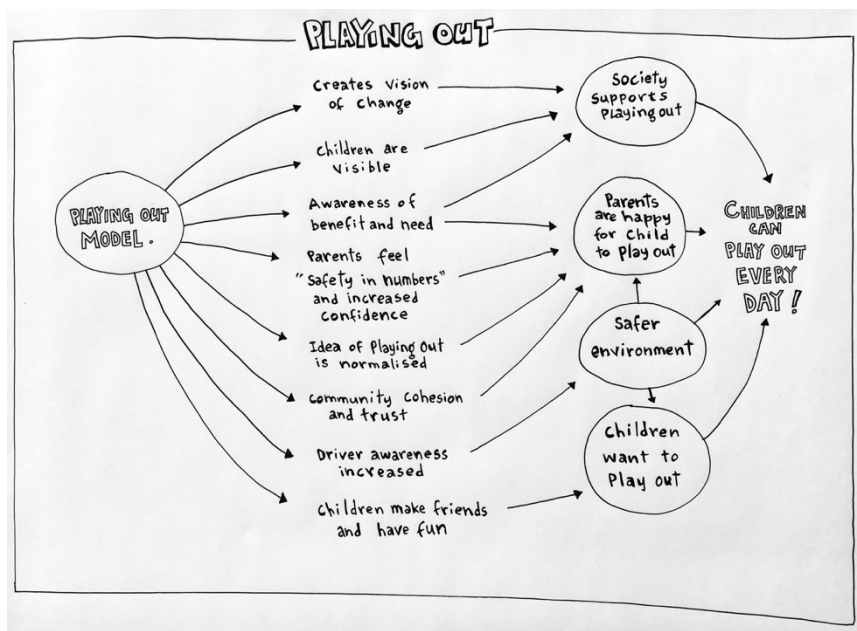 PLAYING OUT
PLAYING OUT
MODEL.
Creates Vision
of change
Children are
visible
Awareness of
benefit and need
Parents feel
"Safety in numbers"
and increased
confidence
Idea of Playing Out
is normalised
Community Cohesion
and trust
Driver awareness
increased
Children make friends
and have fun
Society
supports
Playing out
Parents
are happy
for child
to play out
Safer
environment
Children
want to
Play out
CHILDREN
CAN
PLAY OUT
EVERY
DAY!